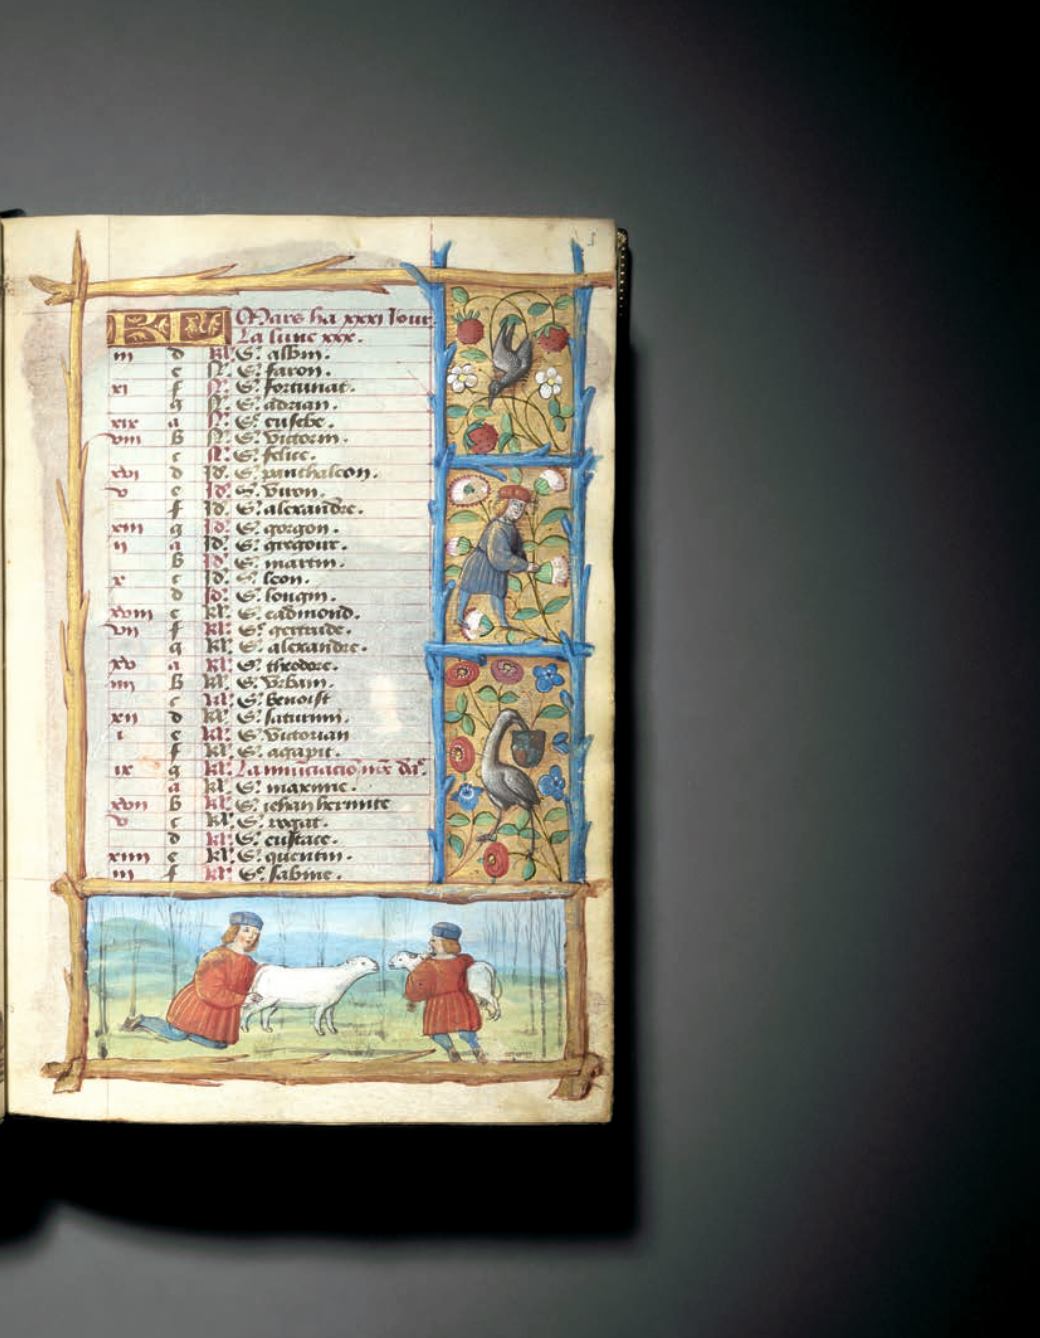 KL Mars ha xxxi Jour
La lune xxx.
iii d kl. S. albin.
e N. S. faron.
xi f N. S. fortunat.
g N. S. adrian.
xix a N. Sᵉ eusebe.
viii B N. S. victorin.
c N. S. felice.
xvi d Id. S. panthaleon.
v e Id. S. viron.
f Id. S. alexandre.
xiii g Id. S. gorgon.
ii a Id. S. gregoir.
B Id. S. martin.
x c Id. S. leon.
d Id. S. longin.
xviii e kl. S. eadmond.
vii f kl. Sᵉ gertrude.
g kl. S. alexandre.
xv a kl. S. theodore.
iiii B kl. S. vrbain.
c kl. S. benoist
xii d kl. S. saturnin.
i e kl. S. victorian
f kl. S. agapit.
ix g kl. Lannūciatiō nr̄e da.ᵉ
a kl. S. maxime.
xvii B kl. S. jehan hermite
v c kl. S. rogat.
d kl. S. eustace.
xiiii e kl. S. quentin.
iii f kl. Sᵉ sabine.